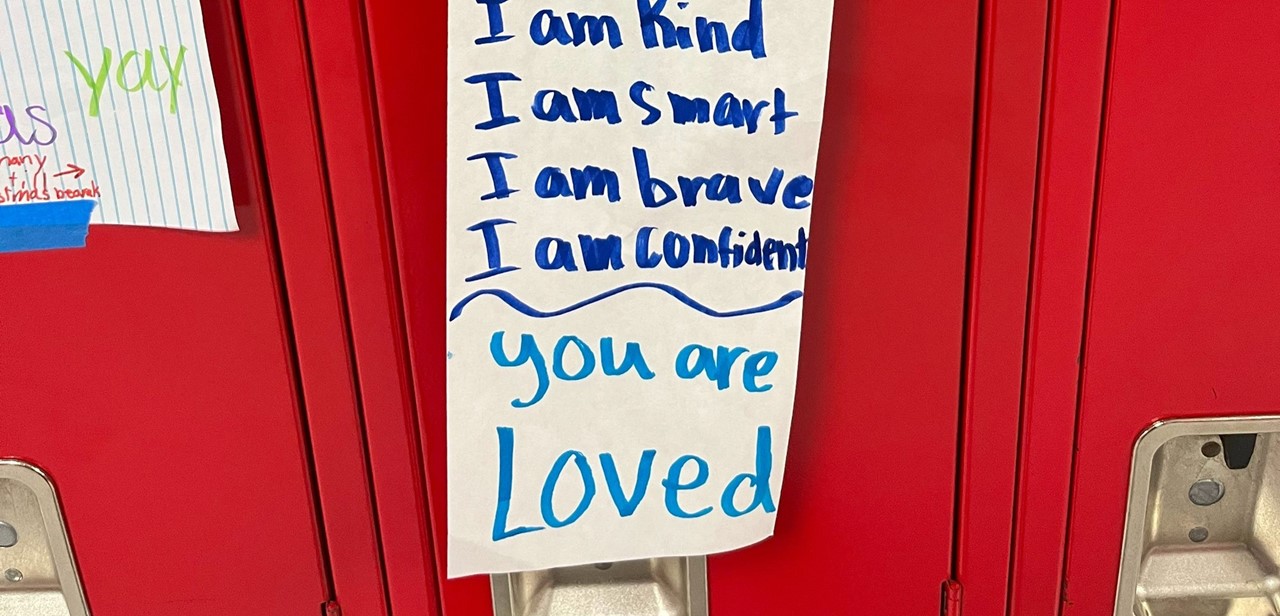 yay
as
many
+
stmas bearak
I am Kind
I am smart
I am brave
I am confident
you are
Loved